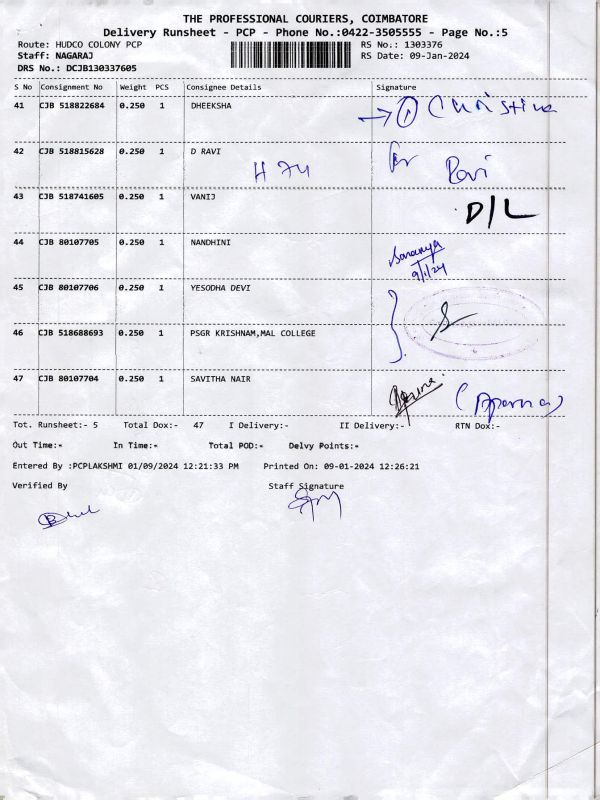 THE PROFESSIONAL COURIERS, COIMBATORE
Delivery Runsheet - PCP - Phone No.:0422-3505555 - Page No.:5
Route: HUDCO COLONY PCP RS No.: 1303376
Staff: NAGARAJ RS Date: 09-Jan-2024
DRS No.: DCJB130337605
S No Consignment No Weight PCS Consignee Details Signature
41 CJB 518822684 0.250 1 DHEEKSHA Christina
42 CJB 518815628 0.250 1 D RAVI
H 74 for Ravi
43 CJB 518741605 0.250 1 VANIJ D/L
44 CJB 80107705 0.250 1 NANDHINI Saranya
9/1/24
45 CJB 80107706 0.250 1 YESODHA DEVI
46 CJB 518688693 0.250 1 PSGR KRISHNAM,MAL COLLEGE
47 CJB 80107704 0.250 1 SAVITHA NAIR (Aparna)
Tot. Runsheet:- 5 Total Dox:- 47 I Delivery:- II Delivery:- RTN Dox:-
Out Time:- In Time:- Total POD:- Delvy Points:-
Entered By :PCPLAKSHMI 01/09/2024 12:21:33 PM Printed On: 09-01-2024 12:26:21
Verified By Staff Signature